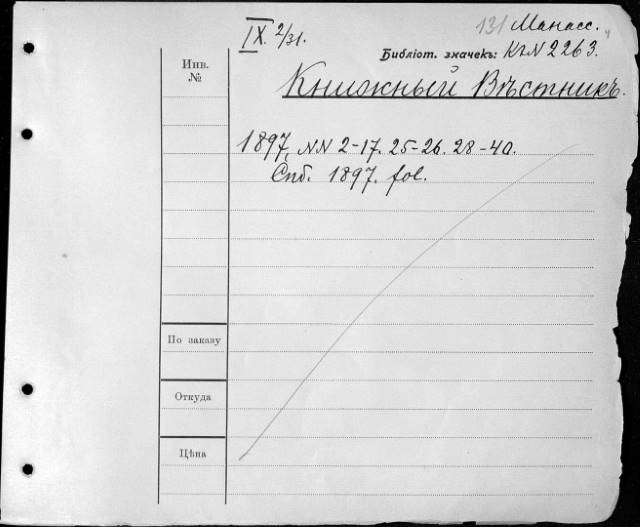 131 Манасс.
IX. 2/31.
Библіот. значекъ: К2N 2263.
Инв.
№
Книжный Вѣстникъ.
1897, NN 2-17. 25-26. 28-40.
Спб. 1897. fol.
По заказу
Откуда
Цѣна